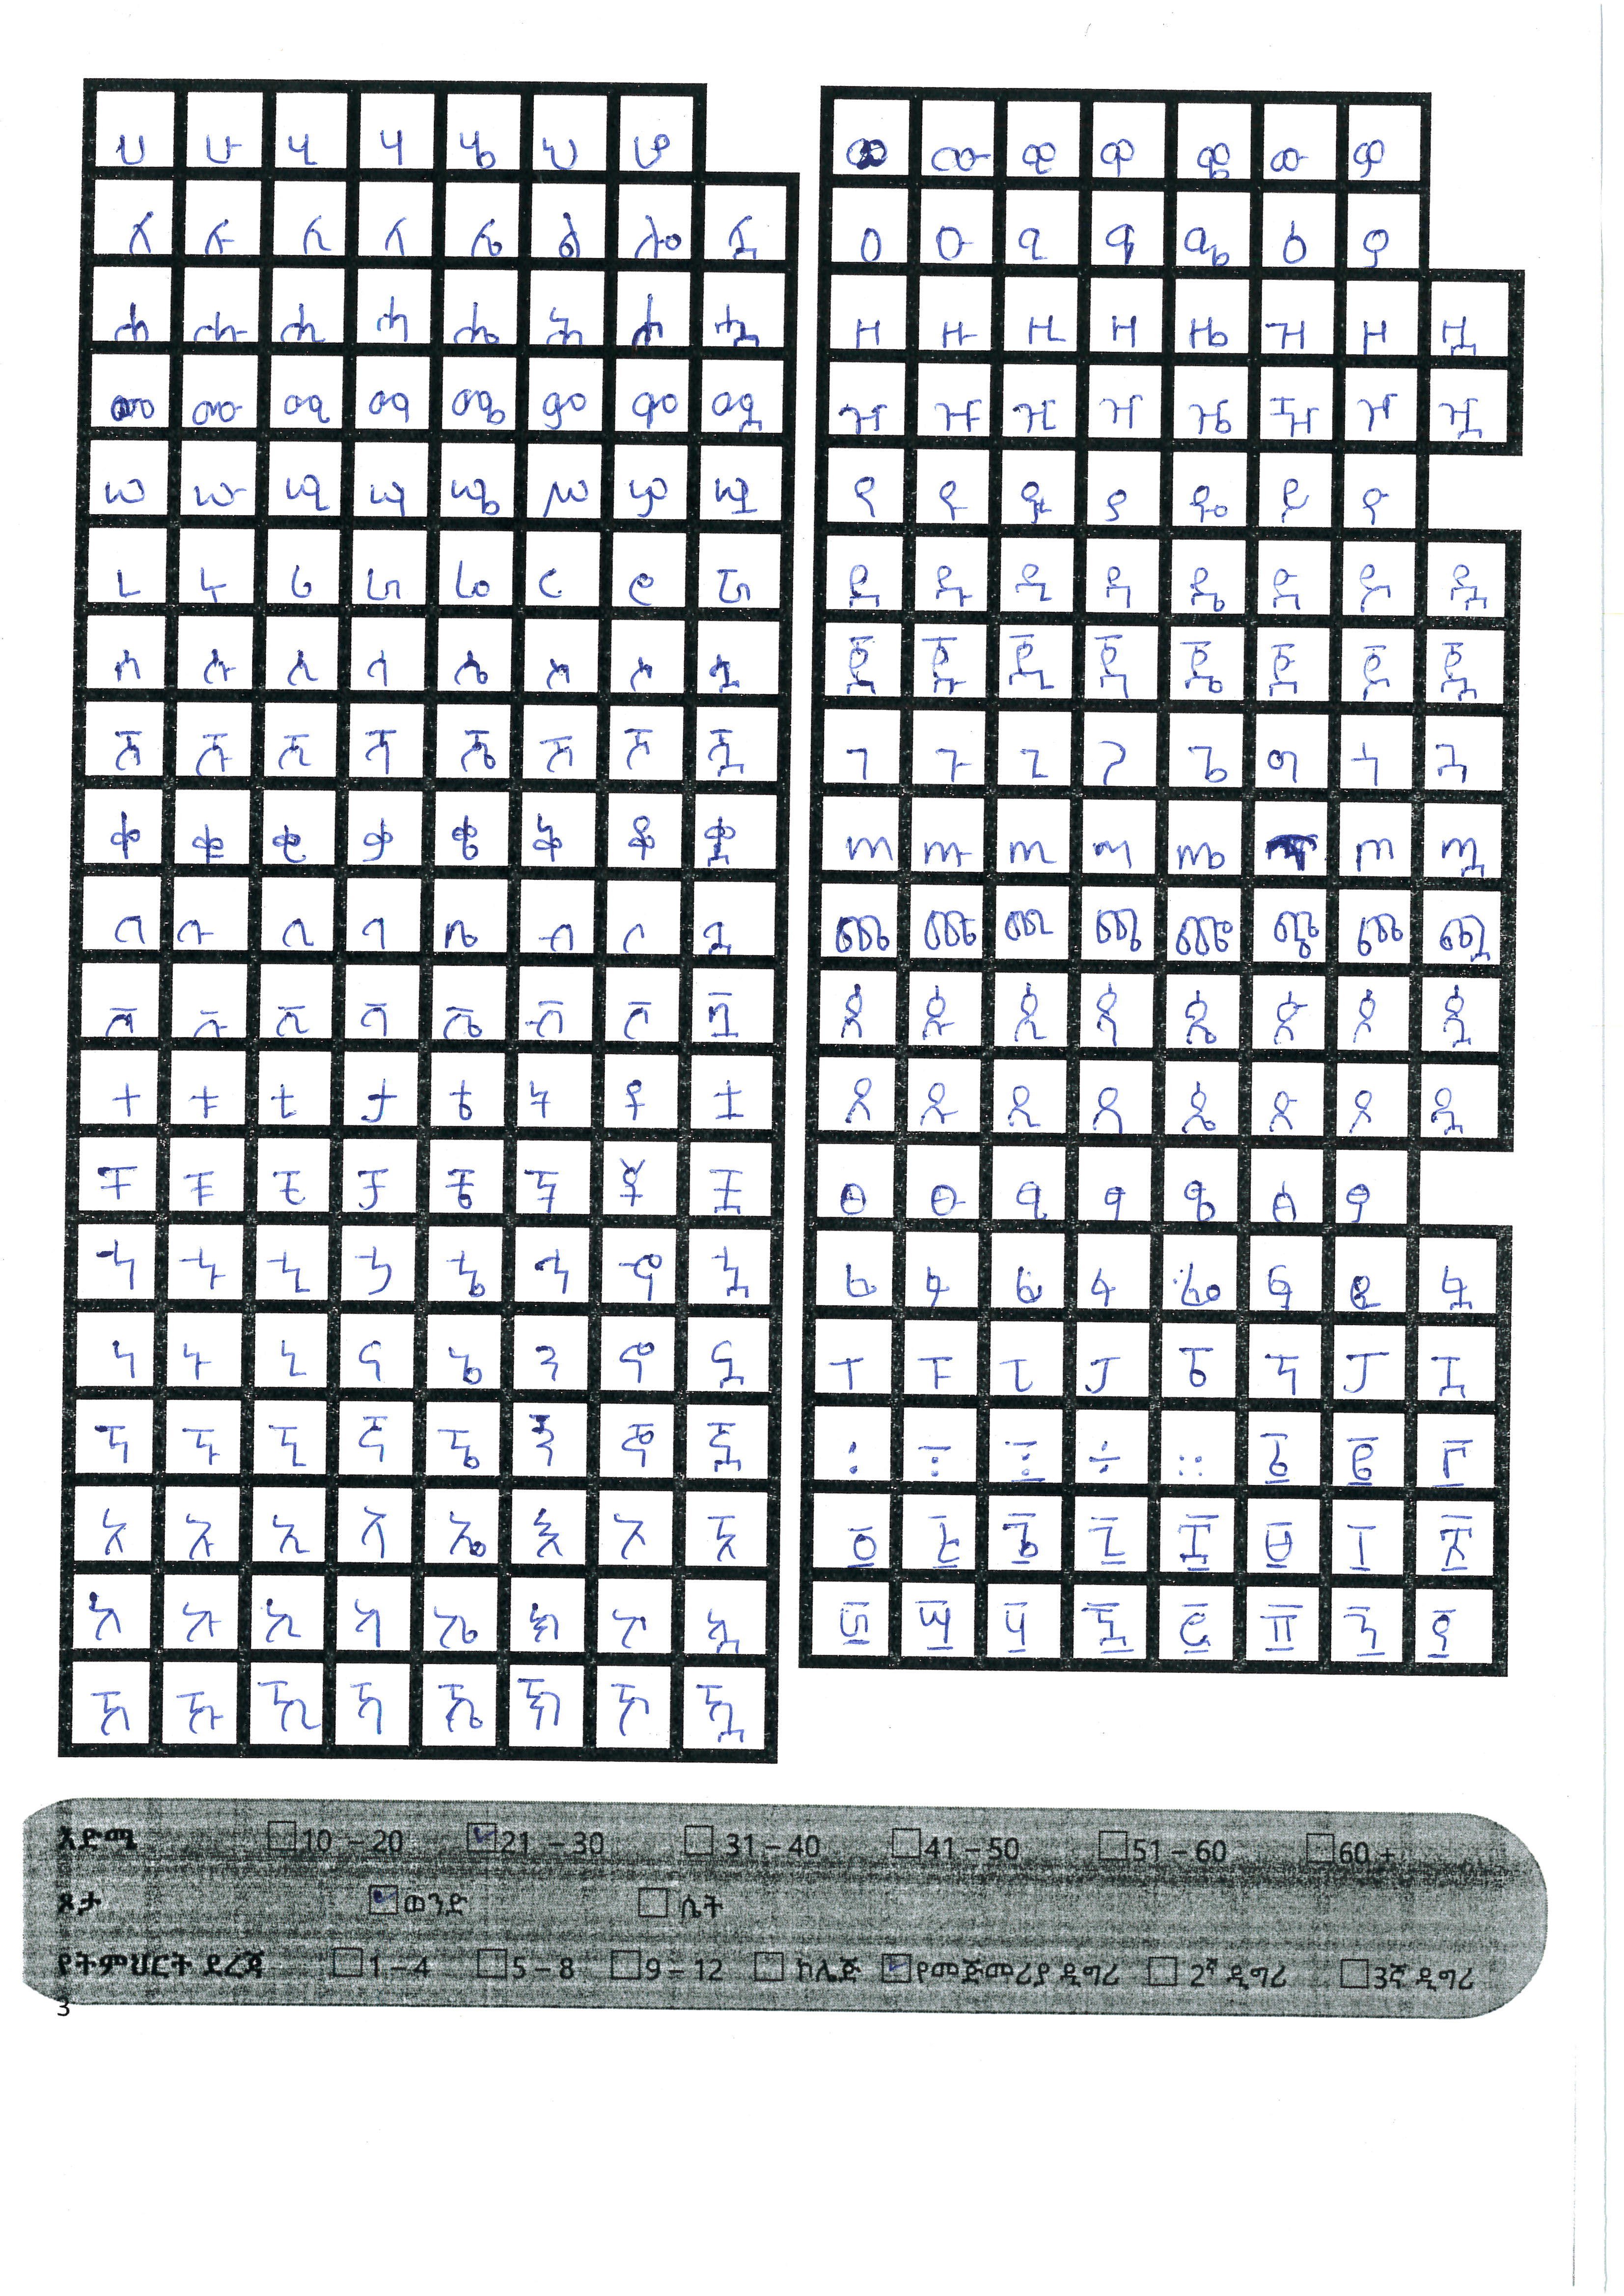 ሀ ሁ ሂ ሃ ሄ ህ ሆ
ለ ሉ ሊ ላ ሌ ል ሎ ሏ
ሐ ሑ ሒ ሓ ሔ ሕ ሖ ሗ
መ ሙ ሚ ማ ሜ ም ሞ ሟ
ሠ ሡ ሢ ሣ ሤ ሥ ሦ ሧ
ረ ሩ ሪ ራ ሬ ር ሮ ሯ
ሰ ሱ ሲ ሳ ሴ ስ ሶ ሷ
ሸ ሹ ሺ ሻ ሼ ሽ ሾ ሿ
ቀ ቁ ቂ ቃ ቄ ቅ ቆ ቋ
በ ቡ ቢ ባ ቤ ብ ቦ ቧ
ቨ ቩ ቪ ቫ ቬ ቭ ቮ ቯ
ተ ቱ ቲ ታ ቴ ት ቶ ቷ
ቸ ቹ ቺ ቻ ቼ ች ቾ ቿ
ኀ ኁ ኂ ኃ ኄ ኅ ኆ ኋ
ነ ኑ ኒ ና ኔ ን ኖ ኗ
ኘ ኙ ኚ ኛ ኜ ኝ ኞ ኟ
አ ኡ ኢ ኣ ኤ እ ኦ ኧ
ከ ኩ ኪ ካ ኬ ክ ኮ ኳ
ኸ ኹ ኺ ኻ ኼ ኽ ኾ ዃ
ወ ዉ ዊ ዋ ዌ ው ዎ
ዐ ዑ ዒ ዓ ዔ ዕ ዖ
ዘ ዙ ዚ ዛ ዜ ዝ ዞ ዟ
ዠ ዡ ዢ ዣ ዤ ዥ ዦ ዧ
የ ዩ ዪ ያ ዬ ይ ዮ
ደ ዱ ዲ ዳ ዴ ድ ዶ ዷ
ጀ ጁ ጂ ጃ ጄ ጅ ጆ ጇ
ገ ጉ ጊ ጋ ጌ ግ ጎ ጓ
ጠ ጡ ጢ ጣ ጤ ጦ ጧ
ጨ ጩ ጪ ጫ ጬ ጭ ጮ ጯ
ጰ ጱ ጲ ጳ ጴ ጵ ጶ ጷ
ጸ ጹ ጺ ጻ ጼ ጽ ጾ ጿ
ፀ ፁ ፂ ፃ ፄ ፅ ፆ
ፈ ፉ ፊ ፋ ፌ ፍ ፎ ፏ
ፐ ፑ ፒ ፓ ፔ ፕ ፖ ፗ
፡ ፣ ፤ ÷ ። ፩ ፪ ፫
፬ ፭ ፮ ፯ ፰ ፱ ፲ ፳
፴ ፵ ፶ ፷ ፸ ፹ ፺ ፻
እድሜ 10 – 20 21 – 30 31 – 40 41 – 50 51 – 60 60 +
ጾታ ወንድ ሴት
የትምህርት ደረጃ 1 – 4 5 – 8 9 – 12 ኮሌጅ የመጀመሪያ ዲግሪ 2ኛ ዲግሪ 3ኛ ዲግሪ
3